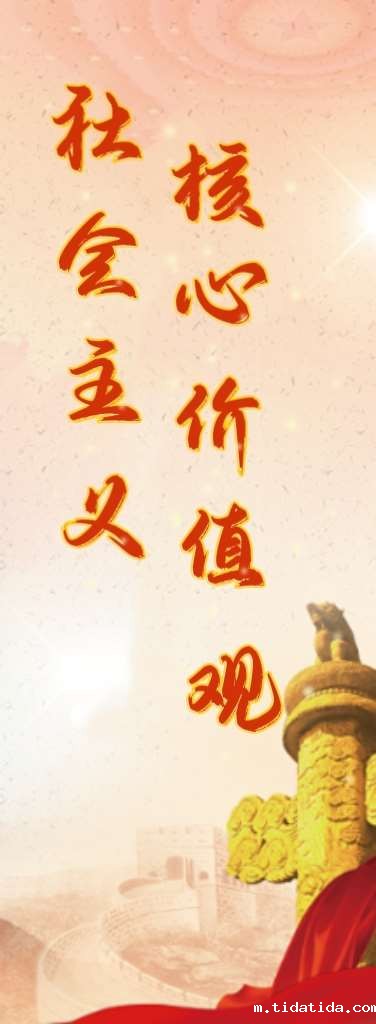 社会主义
核心价值观
m.tidatida.com